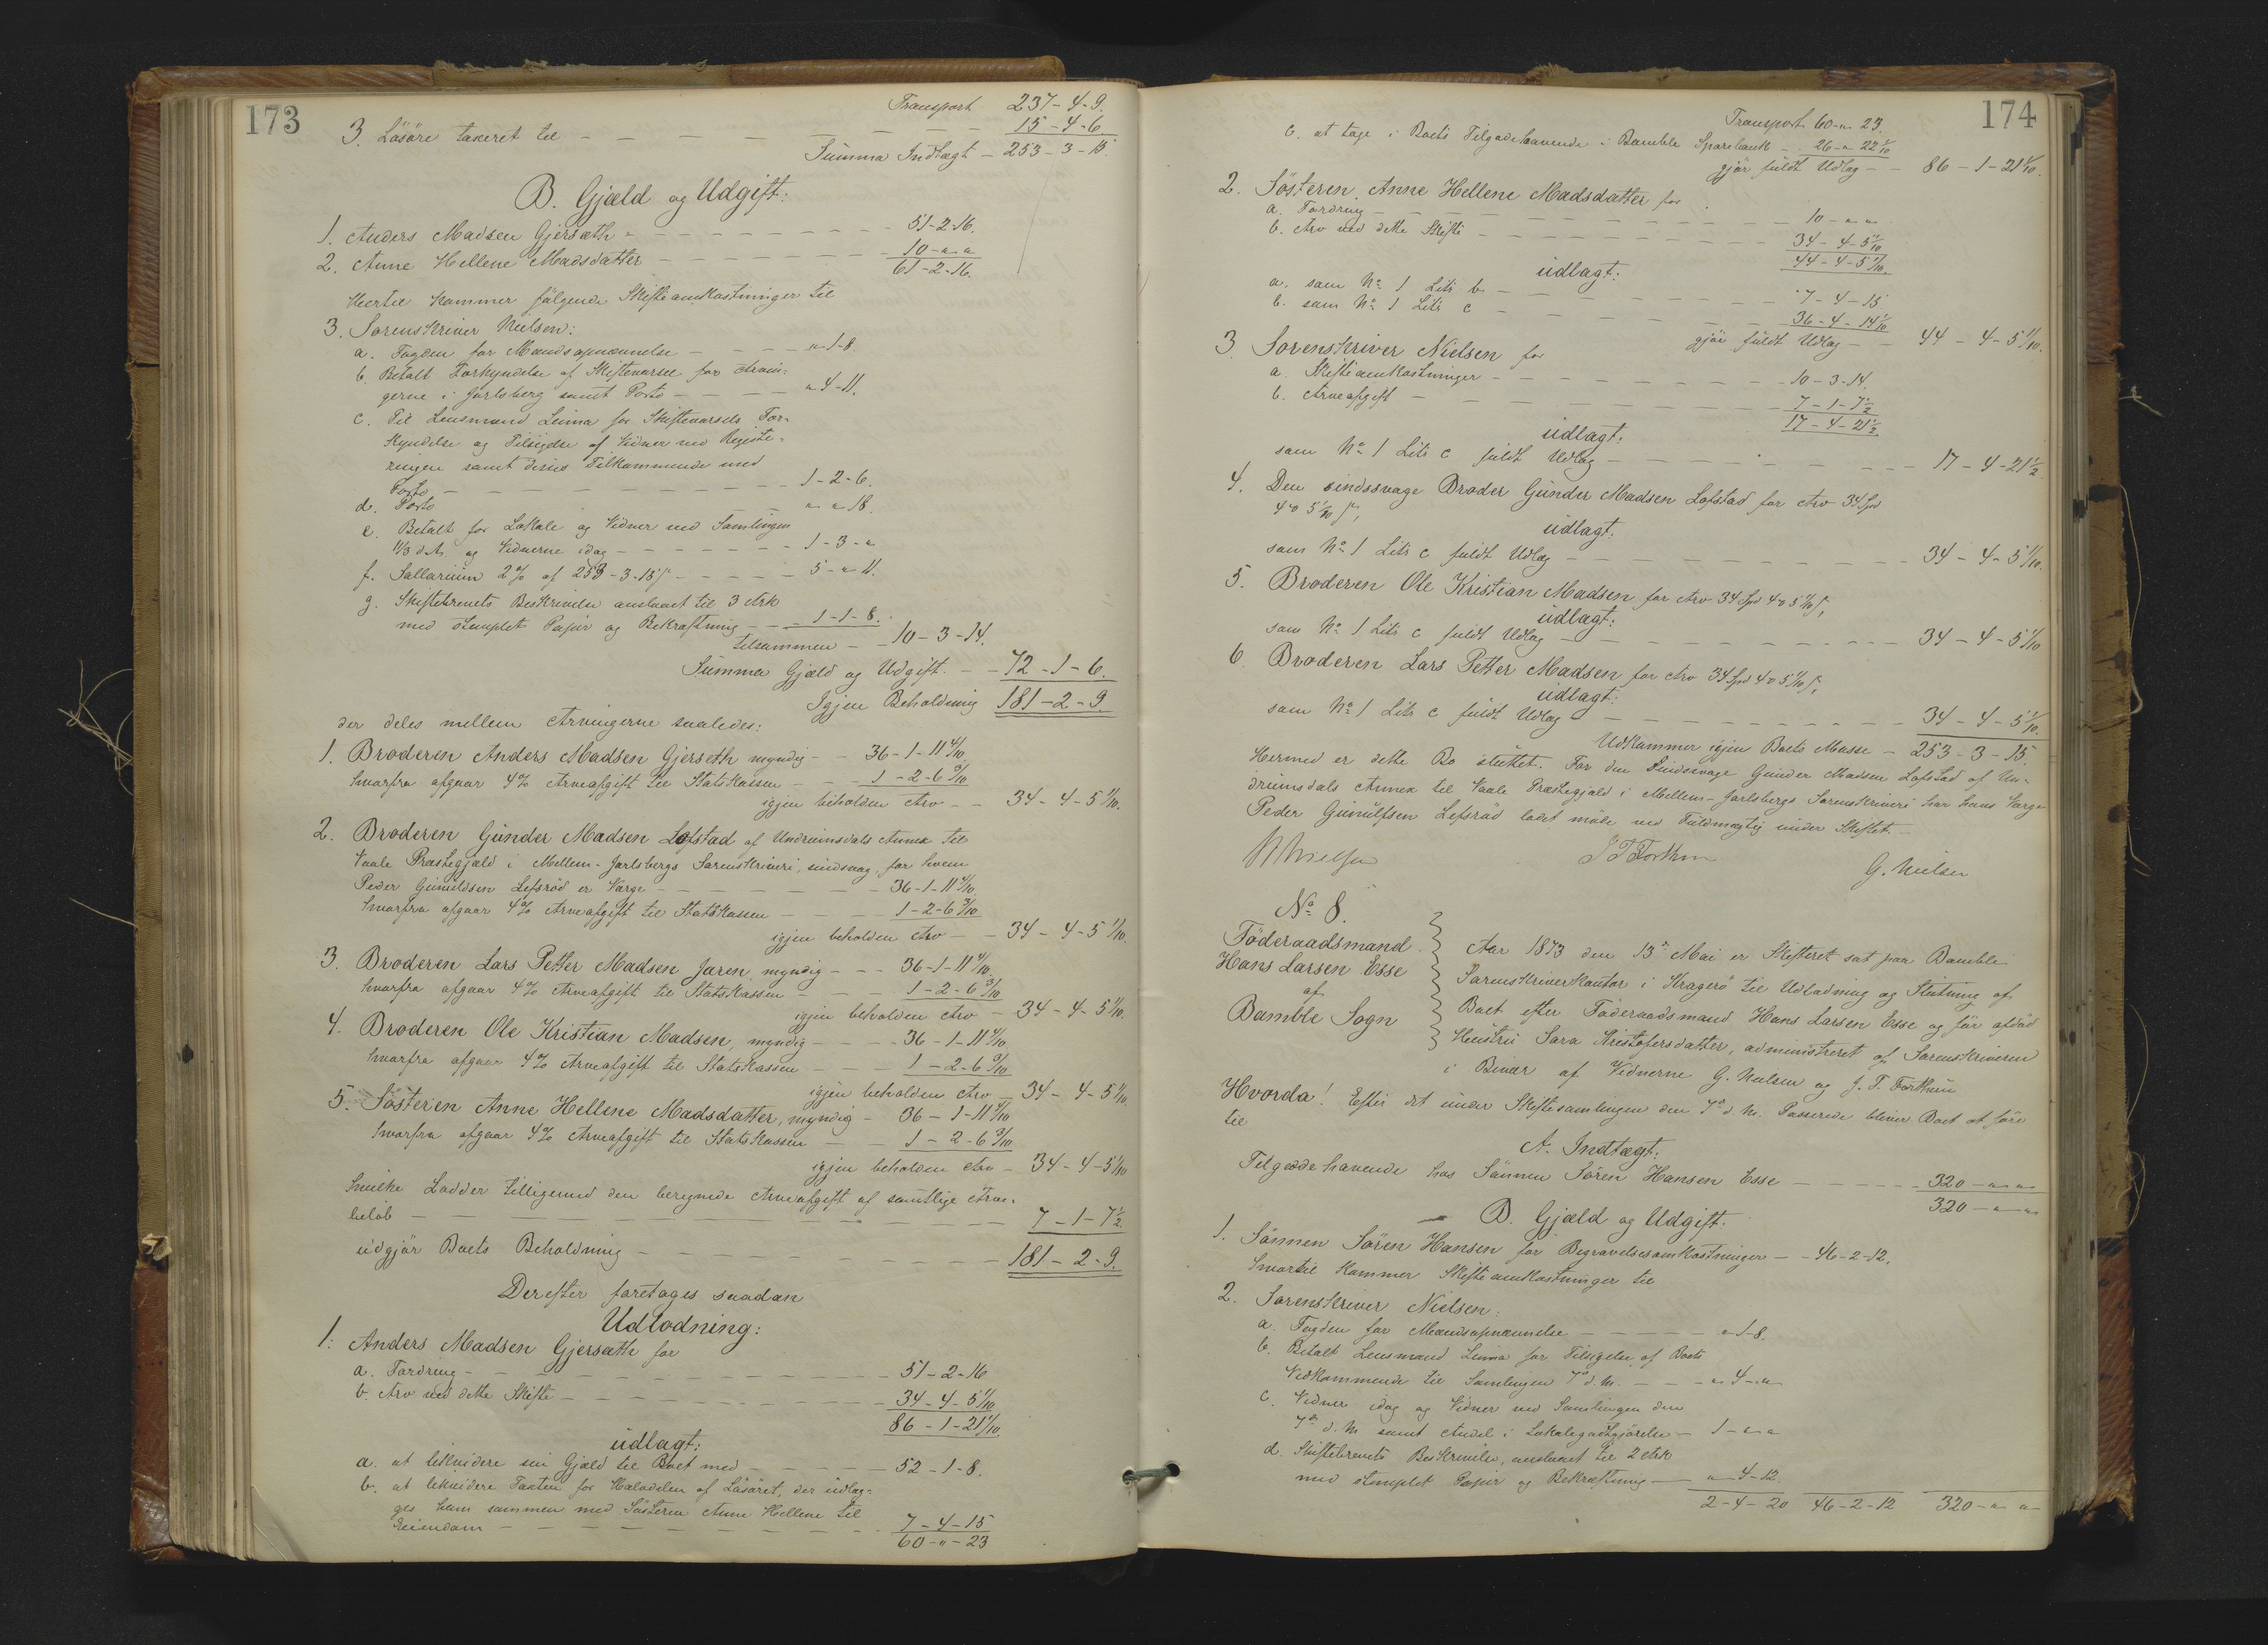 173
Transport 237-4-9.
3. Løsøre taxeret til - - - - - 15-4-6
Summa Indtægt - 253-3-15.
B. Gjæld og Udgift:
1. Anders Madsen Gjersæth - - - - - 51-2-16.
2. Anne Hellene Madsdatter - - - - - 10-"-"
61-2-16.
Hertil kommer følgende Skifteomkostninger til
3. Sorenskriver Nielsen:
a. Fogden for Mændsopnævnelse - - - "-1-8
b. Betalt Forkyndelse af Skiftevarsel for Arvin-
gerne i Jarlsberg samt Porto - - - "-4-11.
c. Til Lensmand Leima for Skiftevarsels For-
kyndelse og Tilsigelse af Vidner ved Registe-
ringen samt disses Tilkommende med
Porto - - - - - 1-2-6.
d. Porto - - "-"-18.
e. Betalt for Lokale og Vidner ved Samlingen
11/3 d.A. og Vidnerne idag - - - - - 1-3-"
f. Sallarium 2% af 253-3-15 ß - - - - 5-"-11.
g. Skiftebrevets Beskrivelse anslaaet til 3 Ark
med stemplet Papir og Bekræftning - - 1-1-8.
tilsammen - - 10-3-14.
Summa Gjæld og Udgift - - 72-1-6.
Igjen Beholdning 181-2-9.
der deles mellem Arvingerne saaledes:
1. Broderen Anders Madsen Gjersæth myndig - - 36-1-11 4/10.
hvorfra afgaar 4% Arveafgift til Statskassen - - 1-2-6 3/10
igjen beholden Arv - - 34-4-5 1/10.
2. Broderen Gunder Madsen Lofstad af Undrumsdals Annex til
Vaale Præstegjæld i Mellem-Jarlsbergs Sorenskriveri, sindssvag, for hvem
Peder Gunuldsen Lefsrød er Værge - - - - - 36-1-11 4/10.
hvorfra afgaar 4% Arveafgift til Statskassen - - - 1-2-6 3/10
igjen beholden Arv - - 34-4-5 1/10.
3. Broderen Lars Petter Madsen Jaren, myndig - - - 36-1-11 4/10.
hvorfra afgaar 4% Arveafgift til Statskassen - - - 1-2-6 3/10
igjen beholden Arv - 34-4-5 1/10.
4. Broderen Ole Kristian Madsen, myndig - - - - 36-1-11 4/10
hvorfra afgaar 4% Arveafgift til Statskassen - - - 1-2-6 3/10
igjen beholden Arv - 34-4-5 1/10.
5. Søsteren Anne Hellene Madsdatter, myndig - 36-1-11 4/10
hvorfra afgaar 4% Arveafgift til Statskassen - - 1-2-6 3/10
igjen beholden Arv - 34-4-5 1/10
hvilke Lodder tilligemed den beregnede Arveafgift af samtlige Arve-
beløb - - - - - 7-1-7 1/2
udgjør Boets Beholdning - - - - - 181-2-9.
Derefter foretages saadan
Udlodning:
1: Anders Madsen Gjersæth for
a. Fordring - - - - - 51-2-16
b. Arv ved dette Skifte - - - - - 34-4-5 1/10
86-1-21 1/10.
udlagt:
a. at likvidere sin Gjæld til Boet med - - - - 52-1-8.
b. at likvidere Taxten for Halvdelen af Løsøret, der udlæg-
ges ham sammen med Søsteren Anne Hellene til
Eiendom - - - - - 7-4-15
60-"-23
174
Transport 60-"-23.
c. at tage i Boets Tilgodehavende i Bamble Sparebank - 26-"-22 1/10
gjør fuldt Udlæg - - 86-1-21 1/10.
2. Søsteren Anne Hellene Madsdatter for
a. Fordring - - - - - 10-"-"
b. Arv ved dette Skifte - - - - - 34-4-5 1/10
44-4-5 1/10.
udlagt:
a. som No 1 Litr b - - - - - 7-4-15
b. som No 1 Litr c - - - - - 36-4-14 1/10
gjør fuldt Udlæg - - 44-4-5 1/10.
3. Sorenskriver Nielsen for
a. Skifteomkostninger - - - - - 10-3-14.
b. Arveafgift - - - - - 7-1-7 1/2
17-4-21 1/2
udlagt:
som No 1 Litr c fuldt Udlæg - - - - - 17-4-21 1/2
4. Den sindssvage Broder Gunder Madsen Lofstad for Arv 34 Spd
4 o 5 1/10 ß,
udlagt:
som No 1 Litr c fuldt Udlæg - - - - - 34-4-5 1/10.
5. Broderen Ole Kristian Madsen for Arv 34 Spd 4 o 5 1/10 ß,
udlagt:
som No 1 Litr c fuldt Udlæg - - - - - 34-4-5 1/10
6. Broderen Lars Petter Madsen for Arv 34 Spd 4 o 5 1/10 ß,
udlagt:
som No 1 Litr c fuldt Udlæg - - - - - 34-4-5 1/10.
Udkommer igjen Boets Masse - 253-3-15.
Hermed er dette Bo sluttet. For den sindssvage Gunder Madsen Lofstad af Un-
drumsdals Annex til Vaale Præstegjæld i Mellem-Jarlsbergs Sorenskriveri har hans Værge
Peder Gunulfsen Lefsrød ladet møde ved Fuldmægtig under Skiftet. -
N Nielsen J T Forthun G. Nielsen
No 8.
Föderaadsmand
Hans Larsen Esse
af
Bamble Sogn
Aar 1873 den 13de Mai er Skifteret sat paa Bamble
Sorenskriverkontor i Kragerø til Udlodning og Slutning af
Boet efter Föderaadsmand Hans Larsen Esse og før afdød
Hustru Sara Kristofersdatter, administreret af Sorenskriveren
i Bivær af Vidnerne G. Nielsen og J. T. Forthun
Hvorda! Efter det under Skiftesamlingen den 7de d. M. Passerede bliver Boet at føre
til
A. Indtægt:
Tilgodehavende hos Sønnen Søren Hansen Esse - - - - - 320-"-"
320-"-"
B. Gjæld og Udgift:
1. Sønnen Søren Hansen for Begravelsesomkostninger - - 46-2-12.
hvortil kommer Skifteomkostninger til
2. Sorenskriver Nielsen:
a. Fogden for Mændsopnævnelse - - - - - "-1-8.
b. Betalt Lensmand Leima for Tilsigelse af Boets
Vedkommende til Samlingen 7de d. M. - - - "-4-"
c. Vidner idag og Vidner ved Samlingen den
7de d. M. samt Andel i Lokalegodtgjørelse - 1-"-"
d. Skiftebrevets Beskrivelse, anslaaet til 2 Ark
med stemplet Papir og Bekræftning - "-4-12.
2-4-20 46-2-12 320-"-"